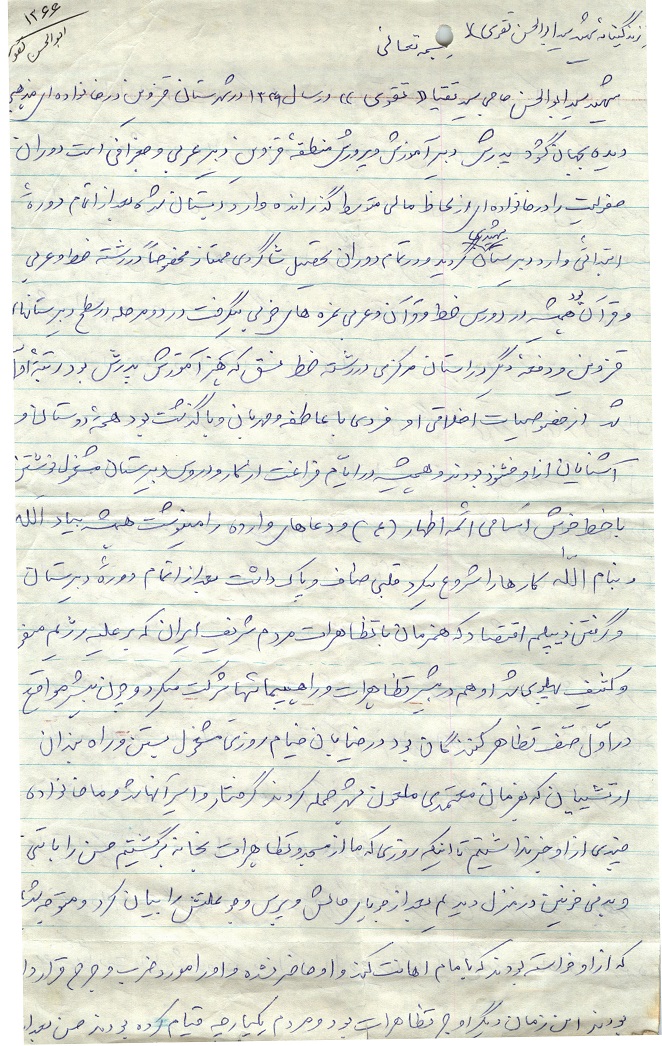 ۱۳۶۶
ابوالحسن تقوی
زندگینامه شهید سید ابوالحسن تقوی
بسمه تعالی
شهید سید ابوالحسن حاجی سید تقیا (تقوی) در سال ۱۳۳۹ در شهرستان قزوین در خانواده ای مذهبی
دیده بجهان گشود پدرش دبیر آموزش و پرورش منطقه قزوین دبیر عربی و جغرافی است دوران
طفولیت را در خانواده ای از لحاظ مالی متوسط گذرانده وارد دبستان شد بعد از اتمام دورهٔ
ابتدائی وارد دبیرستان بهشتی گردید و در تمام دوران تحصیل شاگردی ممتاز مخصوصاً در رشته خط و عربی
و قرآن بود همیشه در دروس خط و قرآن و عربی نمره های خوبی میگرفت در دو مرحله در سطح دبیرستانهای
قزوین و دفعه دیگر در استان مرکزی در رشته خط نسق که هنر آموزش پدرش بود رتبهٔ اول
شد از خصوصیات اخلاقی او فردی با عاطفه و مهربان و با گذشت بود همه دوستان و
آشنایان از او خشنود بودند و همیشه در ایام فراغت از کار و دروس دبیرستان مشغول نوشتن
با خط خوش اسامی ائمه اطهار (ع) و دعاهای وارده را مینوشت همیشه بیاد الله
و بنام الله کارها را شروع میکرد قلبی صاف و پاک داشت بعد از اتمام دورهٔ دبیرستان
و گرفتن دیپلم اقتصاد که همزمان با تظاهرات مردم شریف ایران که بر علیه رژیم منفور
و کثیف پهلوی شد او هم در بیشتر تظاهرات و راهپیمائیها شرکت میکرد و چون بیشتر مواقع
در اول صف تظاهر کنندگان بود در خیابان خیام روزی مشغول بستن راه بندان
ارتشیان که بفرمان معتمدی ملعون بشهر حمله کردند گرفتار و اسیر آنها شد و ما خانواده
چندی از او خبر نداشتیم تا اینکه روزی که ما از مسجد و تظاهرات بخانه برگشتیم حسن را با تنی
و بدنی خونین در منزل دیدیم بعد از جویای حالش و پرس و جو علتش را بیان کرد و متوجه شدیم
که از او خواسته بودند که بامام اهانت کند و او حاضر نشده و او را مورد ضرب و جرح قرار داده
بودند این زمان دیگر اوج تظاهرات بود و مردم یکپارچه قیام کرده بودند حسن بعد از